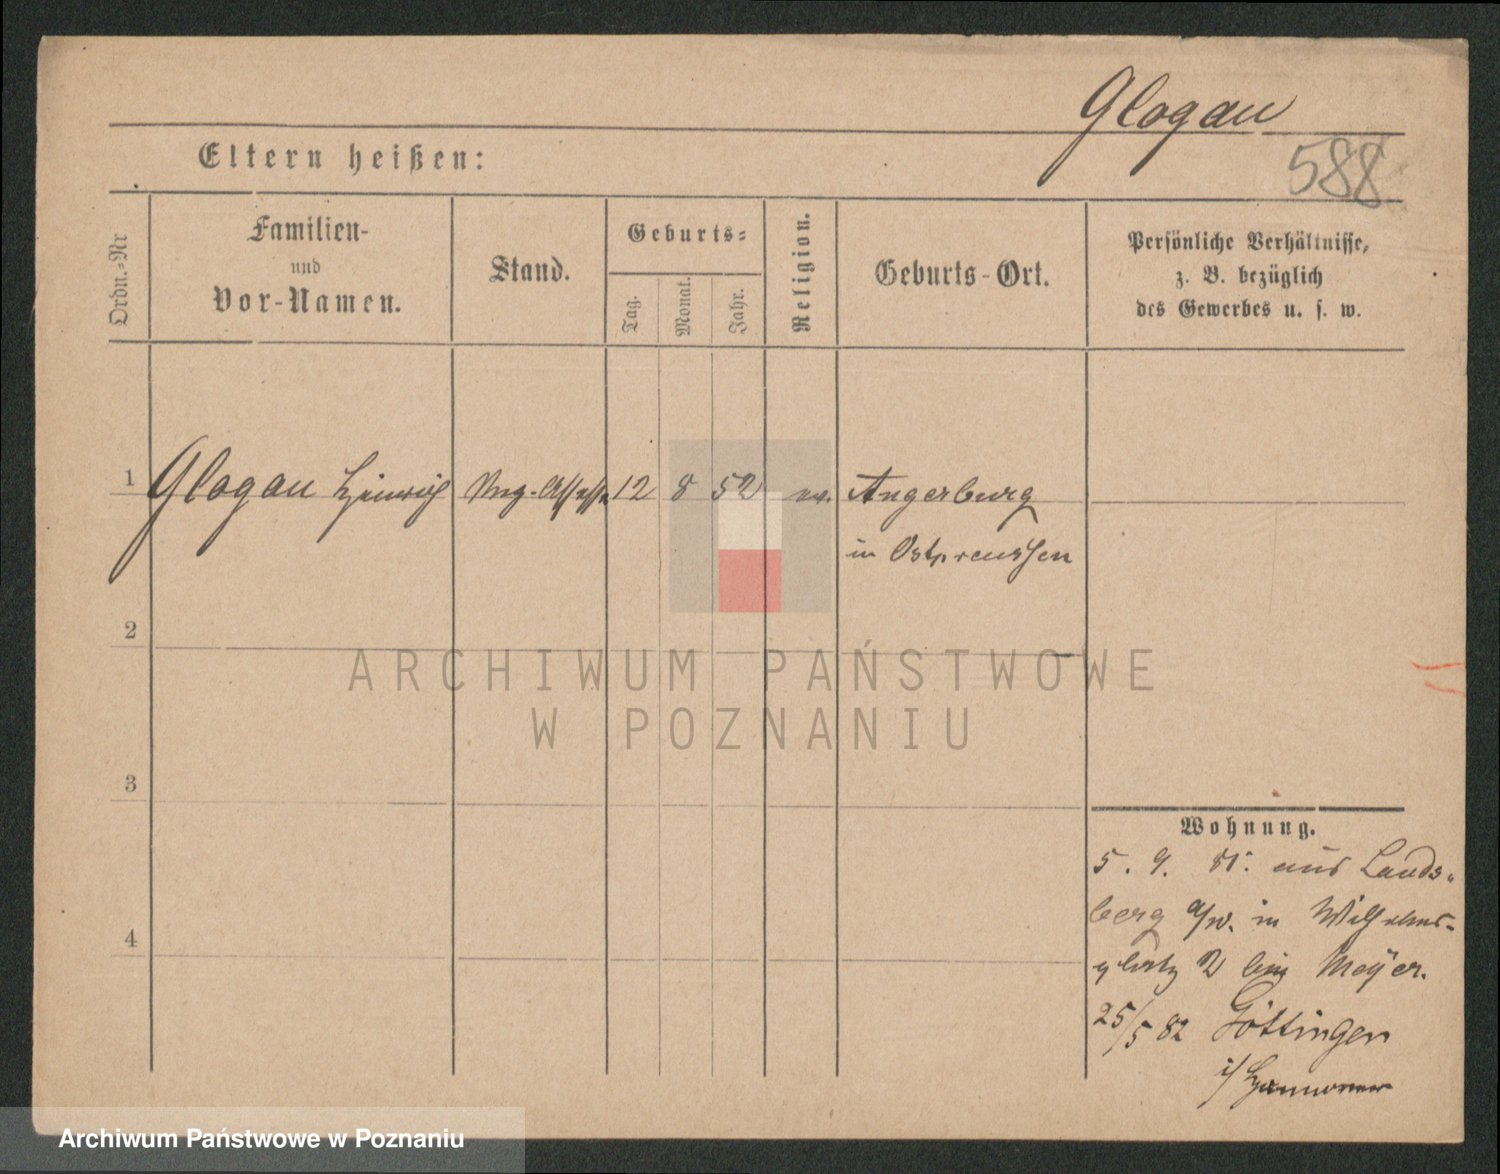 Glogau
588
Eltern heißen:
Ordn.-Nr
Familien-
und
Vor-Namen.
Stand.
Geburts-
Tag.
Monat.
Jahr.
Religion.
Geburts-Ort.
Persönliche Verhältnisse,
z. B. bezüglich
des Gewerbes u. s. w.
1 Glogau Heinrich Reg.-Assessor 12 8 52 ev. Angerburg
in Ostpreussen
2
ARCHIWUM PAŃSTWOWE
W POZNANIU
3
Wohnung.
5. 9. 81. aus Lands-
berg a/W. in Wilhelms-
platz 2 bei Meÿer.
4
25/5 82 Göttingen
i/ Hannover
Archiwum Państwowe w Poznaniu